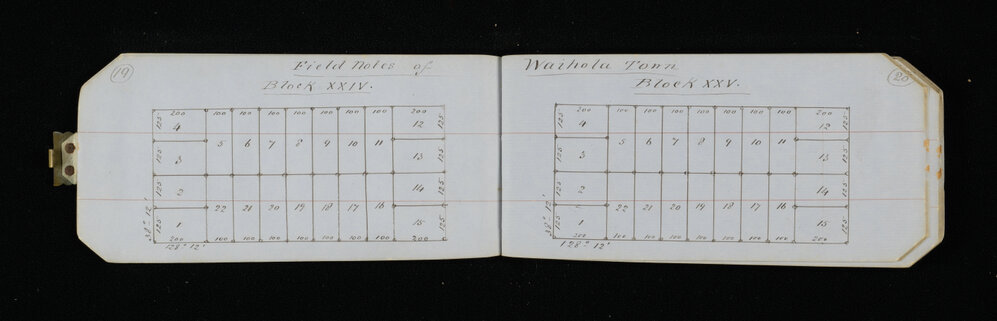 19
Field Notes of
Block XXIV.
200 100 100 100 100 100 100 100 200
125 4 12 125
5 6 7 8 9 10 11
125 3 13 125
125 2 14 125
22 21 20 19 18 17 16
38° 12' 125 1 15 125
200 100 100 100 100 100 100 100 200
128° 12'
20
Waihola Town
Block XXV.
200 100 100 100 100 100 100 100 200
125 4 12 125
5 6 7 8 9 10 11
125 3 13 125
125 2 14 125
22 21 20 19 18 17 16
38° 12' 125 1 15 125
200 100 100 100 100 100 100 100 200
128° 12'